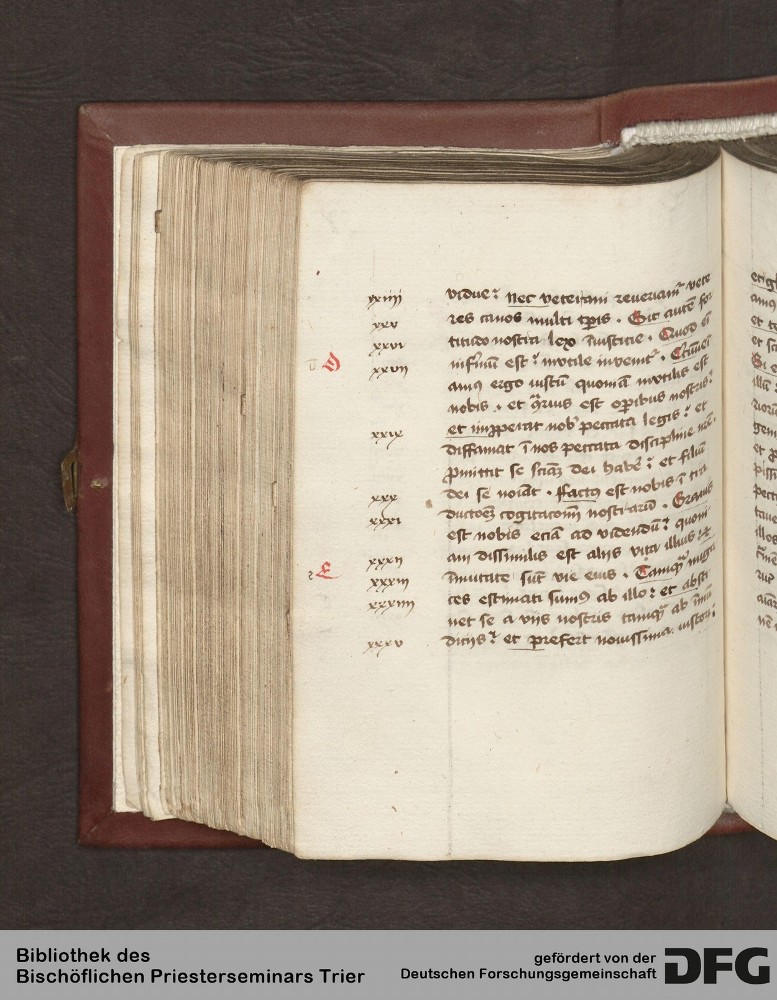 xxiiii vidue: nec veterani reveriamr vete
xxv res canos multi tpris. Sit autem for
xxvi titudo nostra lex iniusticie. Quod em
D xxvii infirmum est: inutile invenitr. Circumveni
amus ergo iustum quoniam inutilis est
nobis. et contrarius est operibus nostris:
xxix et impperat nob peccata legis: et
diffamat in nos peccata discipline nre.
Promittit se sciam dei habere: et filium
xxx dei se noiat. Factus est nobis in tra
xxxi ductoem cogitacionum nostrarum. Gravis
est nobis eciam ad videndum: quoni
xxxii am dissimilis est aliis vita illius: et
E xxxiii inmutate sunt vie eius. Tamquam nuga
xxxiiii ces estimati sumus ab illo: et absti
net se a viis nostris tamquam ab inmun
xxxv diciis: et prefert novissima iustorum:
Bibliothek des
Bischöflichen Priesterseminars Trier
gefördert von der
Deutschen Forschungsgemeinschaft
DFG